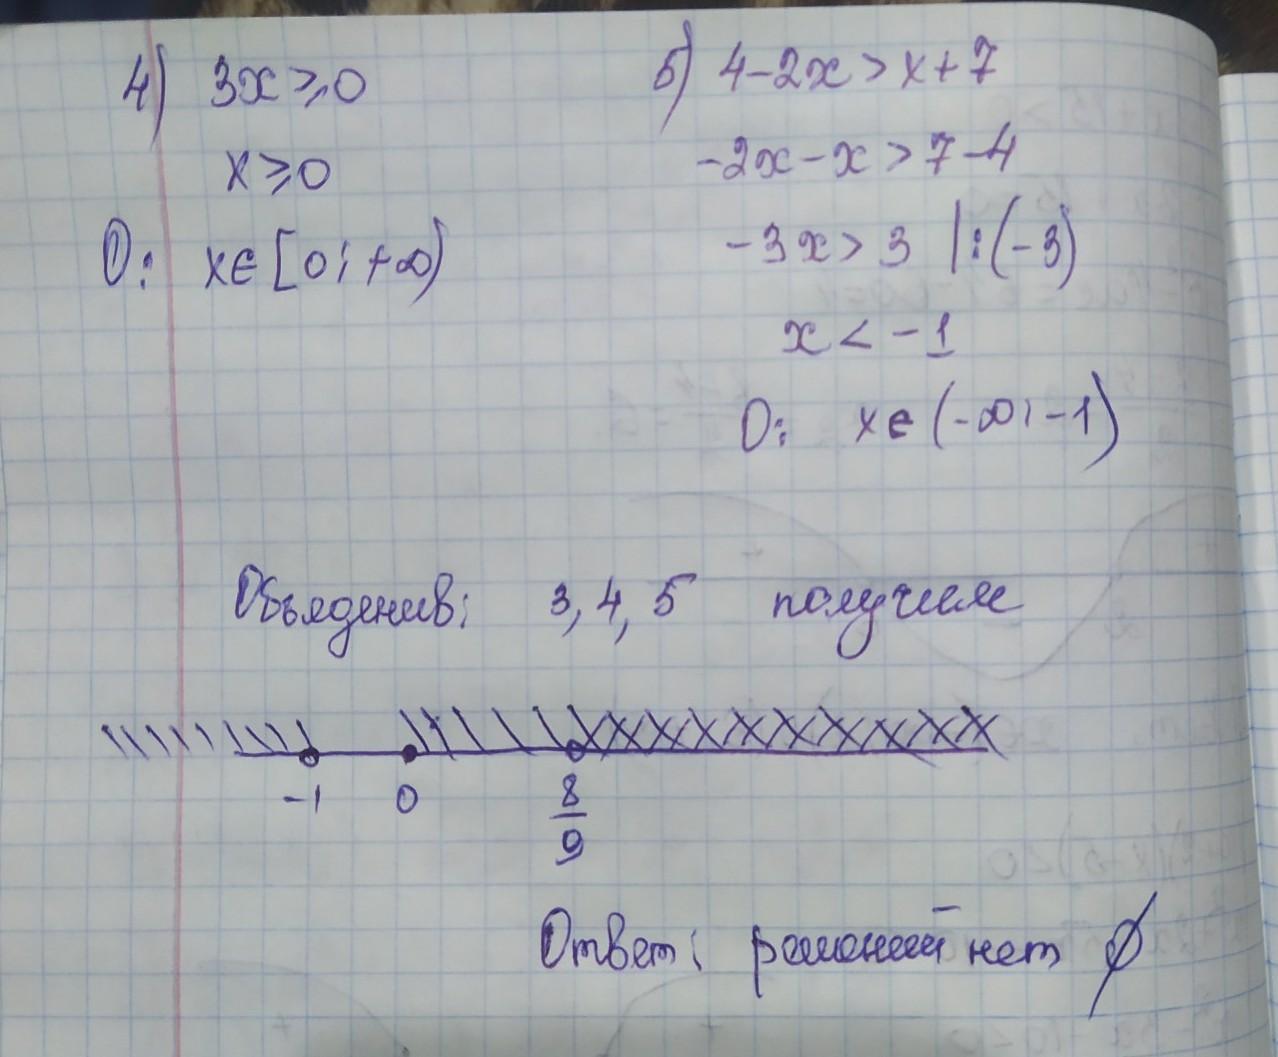 4) 3x ⩾ 0
x ⩾ 0
O: x ∈ [0; +∞)
5) 4 - 2x > x + 7
-2x - x > 7 - 4
-3x > 3 |:(-3)
x < -1
O: x ∈ (-∞; -1)
Объединив: 3, 4, 5 получим
-1 0 8/9
Ответ: решений нет ∅